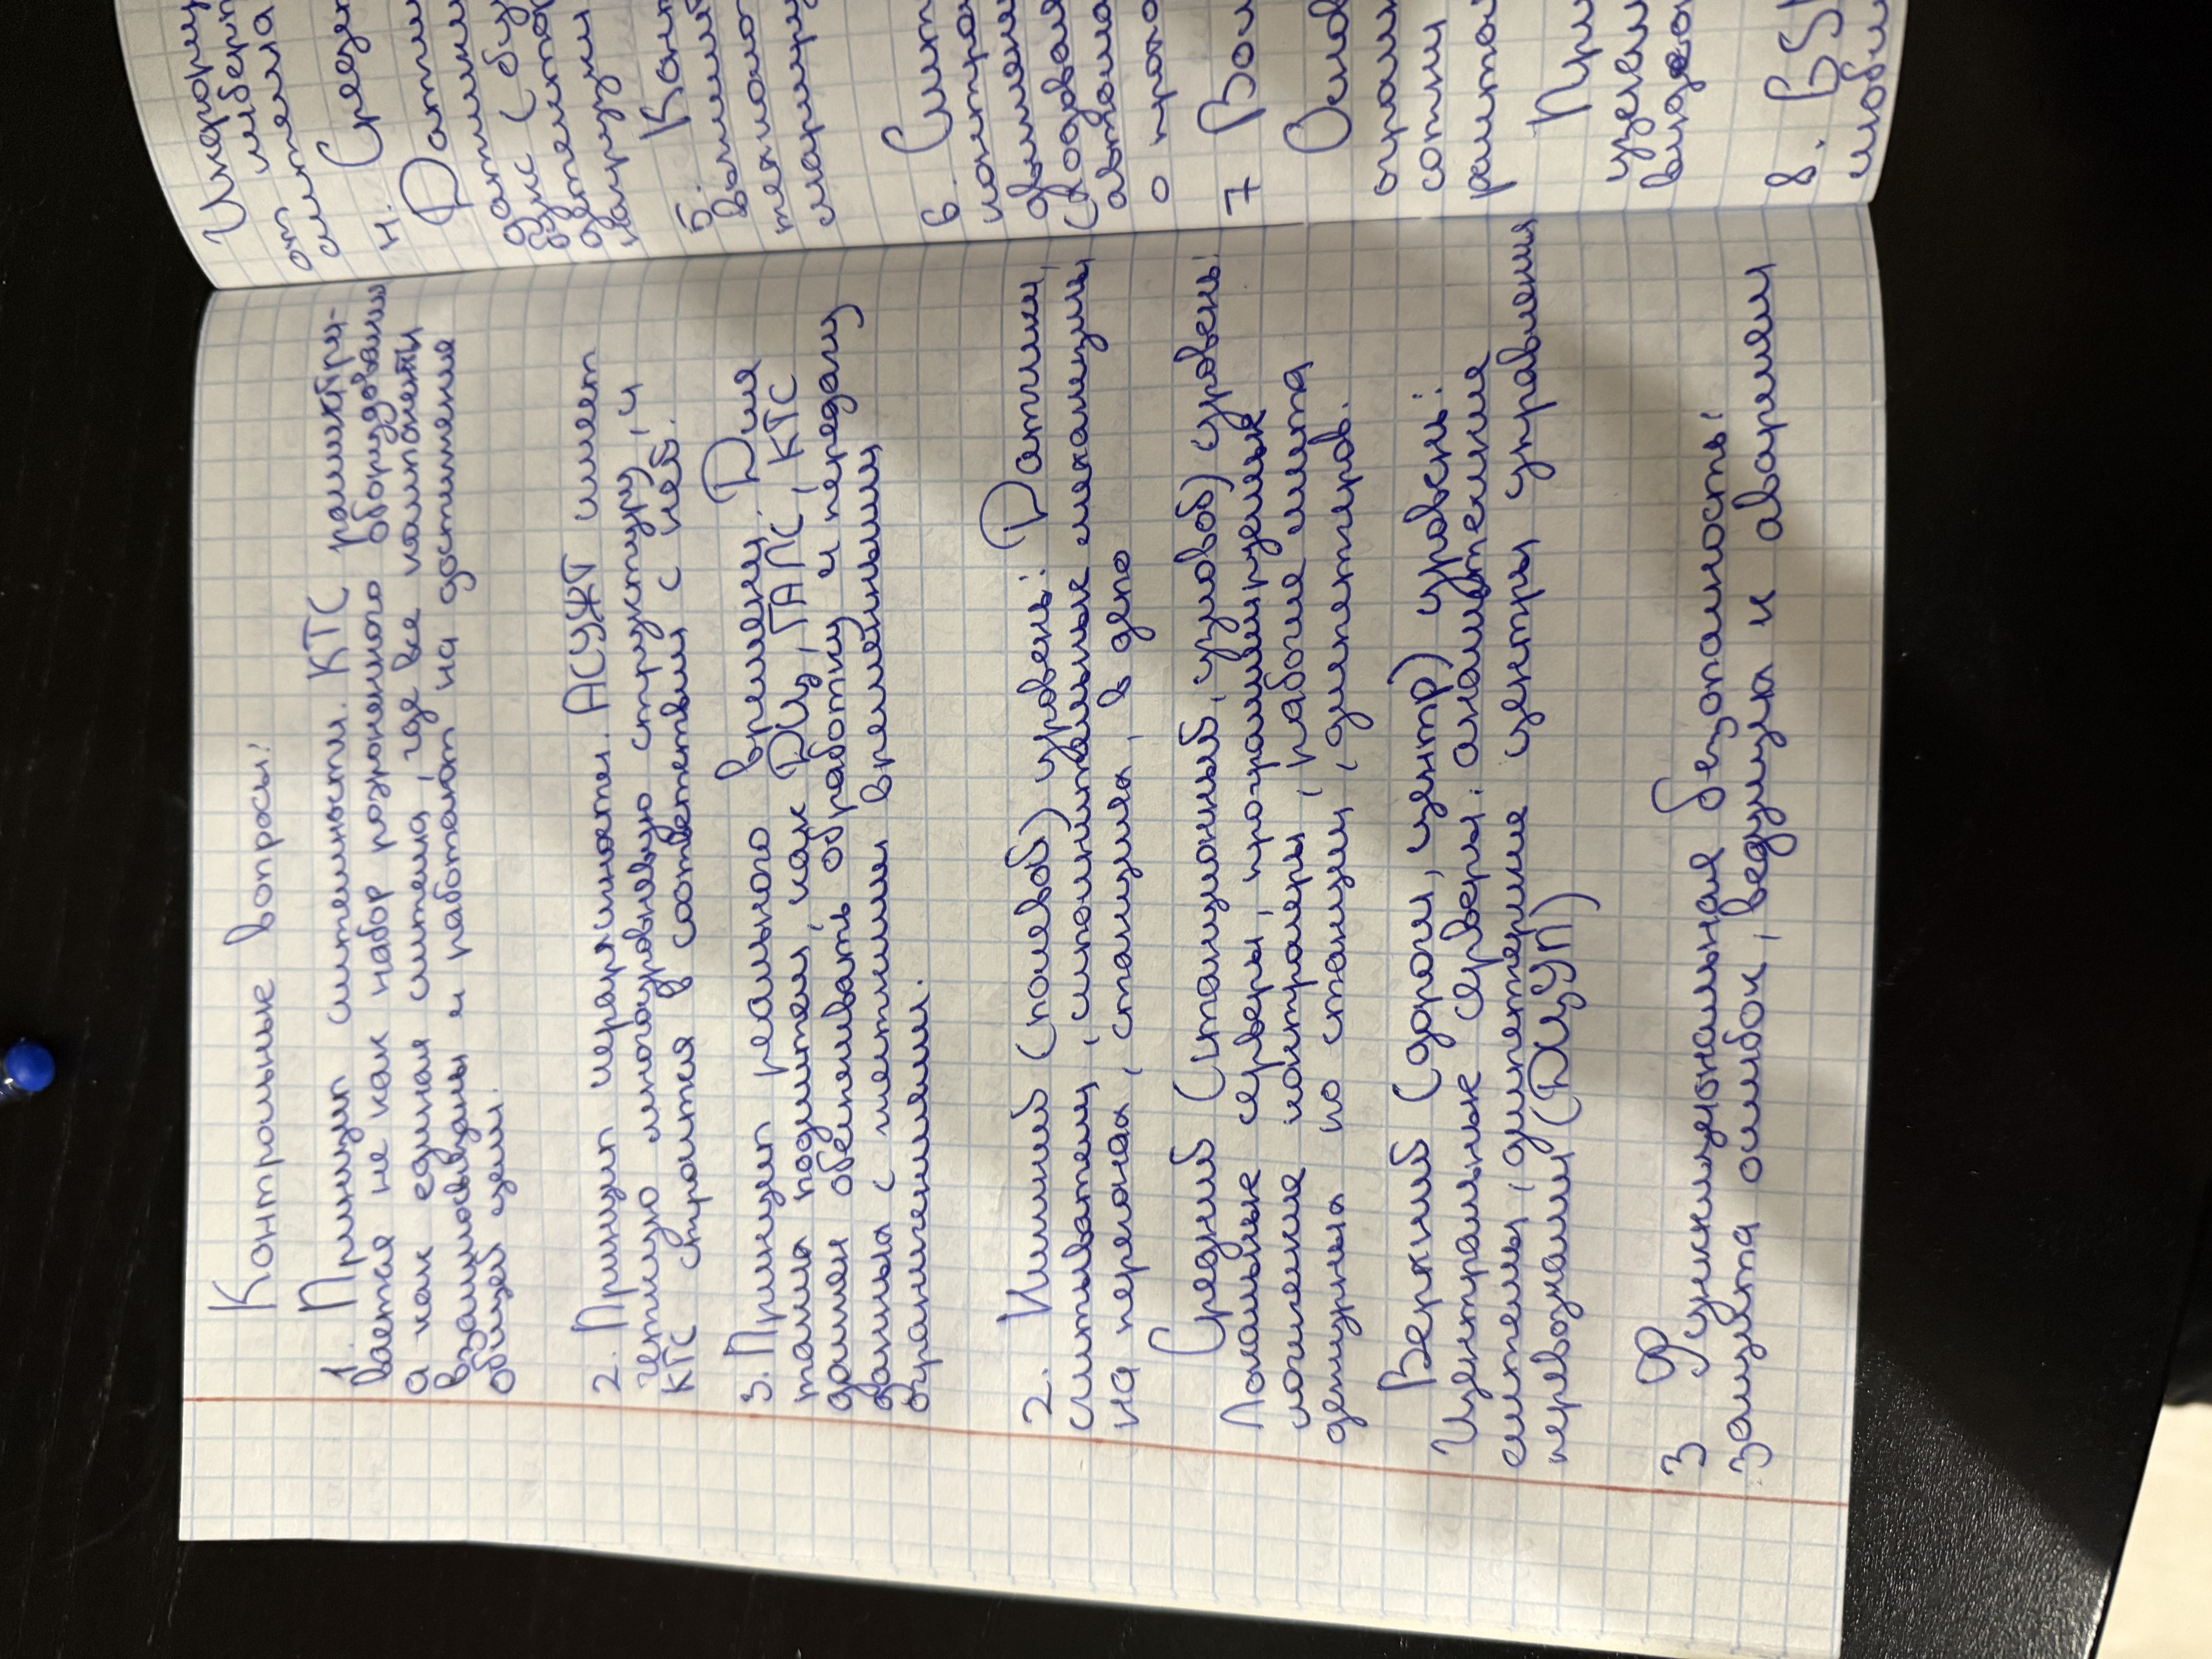 Контрольные вопросы:
1. Принцип системности. КТС рассматри-
вается не как набор разрозненного оборудования
а как единая система, где все компоненты
взаимосвязаны и работают на достижение
общей цели.
2. Принцип иерархичности. АСУЖТ имеет
четкую многоуровневую структуру, и
КТС строится в соответствии с ней.
3. Принцип реального времени. Для
таких подсистем, как ДЦ, ГАЛС, КТС
должен обеспечивать обработку и передачу
данных с жесткими временными
ограничениями.
2. Нижний (полевой) уровень: Датчики,
считыватели, исполнительные механизмы
на перегонах, станциях, в депо
Средний (станционный, узловой) уровень:
Локальные серверы, программируемые
логические контроллеры, рабочие места
дежурных по станции, диспетчеров.
Верхний (дороги, центр) уровень:
Центральные серверы, аналитические
системы, диспетчерские центры управления
перевозками (ДЦУП)
3 Функциональная безопасность:
защита ошибок, ведущих к авариям
Информ
от кибер
система
4. Средст
Датчики
5. Конт
6. Сист
7 Вол
Основ
При
8.